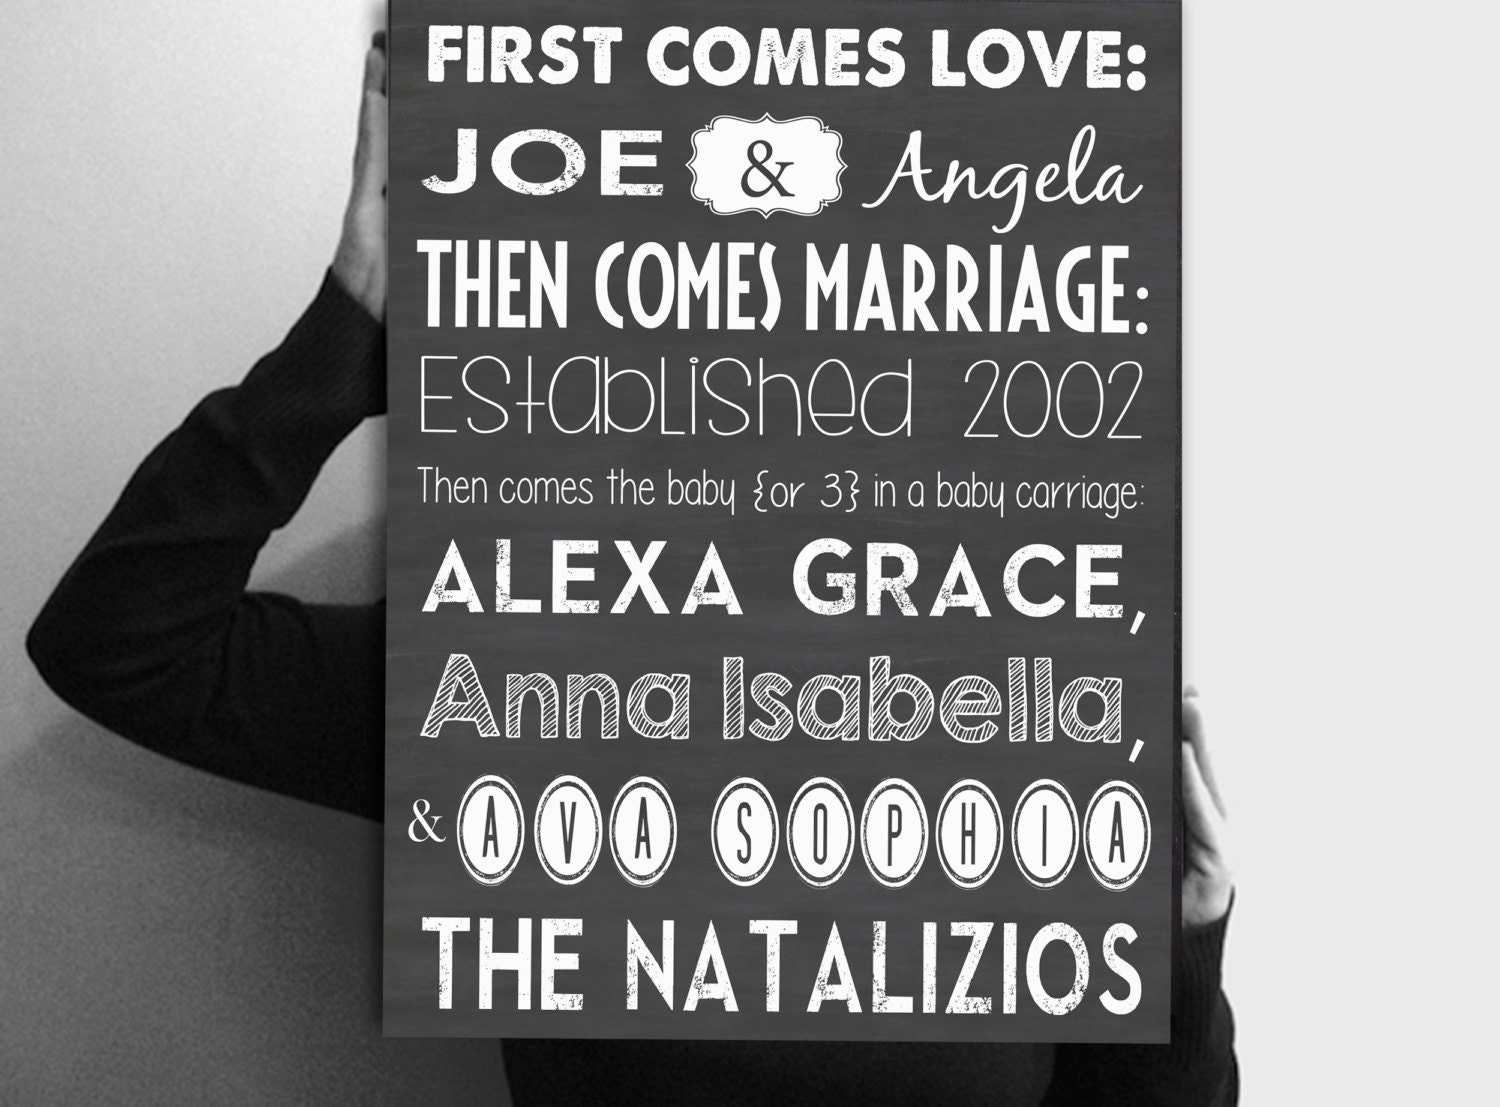 FIRST COMES LOVE:
JOE & Angela
THEN COMES MARRIAGE:
Established 2002
Then comes the baby {or 3} in a baby carriage:
ALEXA GRACE,
Anna Isabella,
& AVA SOPHIA
THE NATALIZIOS